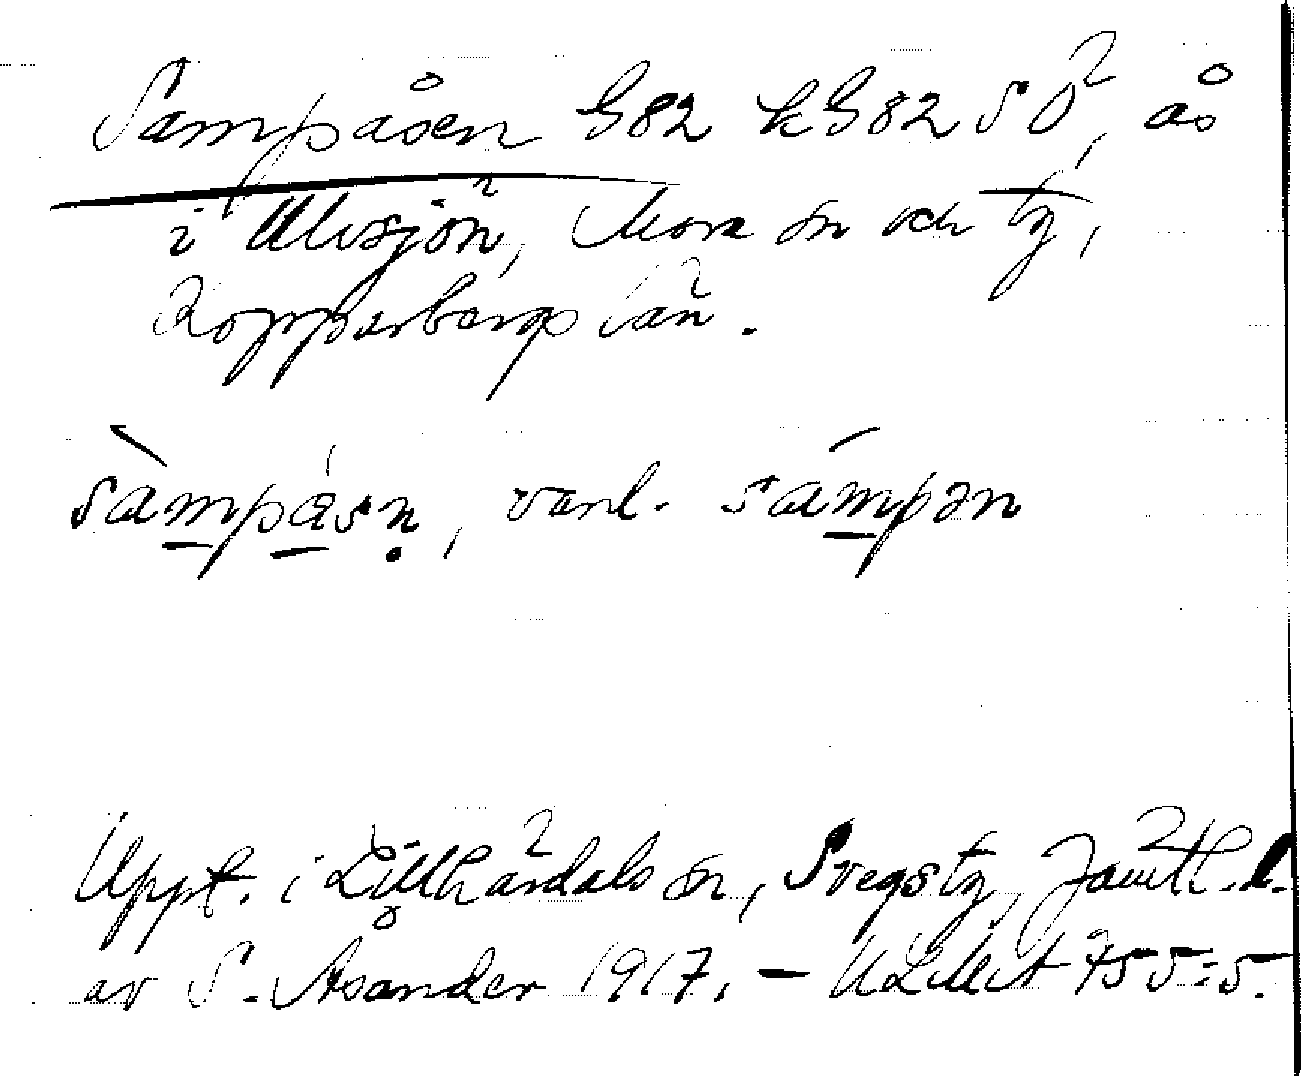 Sampåsen G82 kG82 SÖ, ås
i Ulvsjön, Mora sn och tg,
Kopparbergs län.
sàmpásṇ, vanl. sámpən
Uppt. i Lillhärdals sn, Svegs tg, Jämtl. l.
av S. Åsander 1917. – ULMA 755:5.